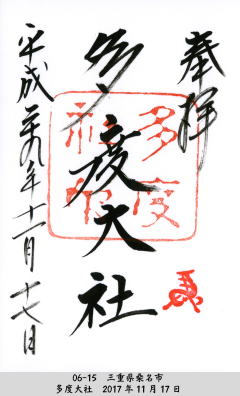 奉拝
多度大社
平成二十九年十一月十七日
多度
社印
06-15 三重県桑名市
多度大社 2017年11月17日